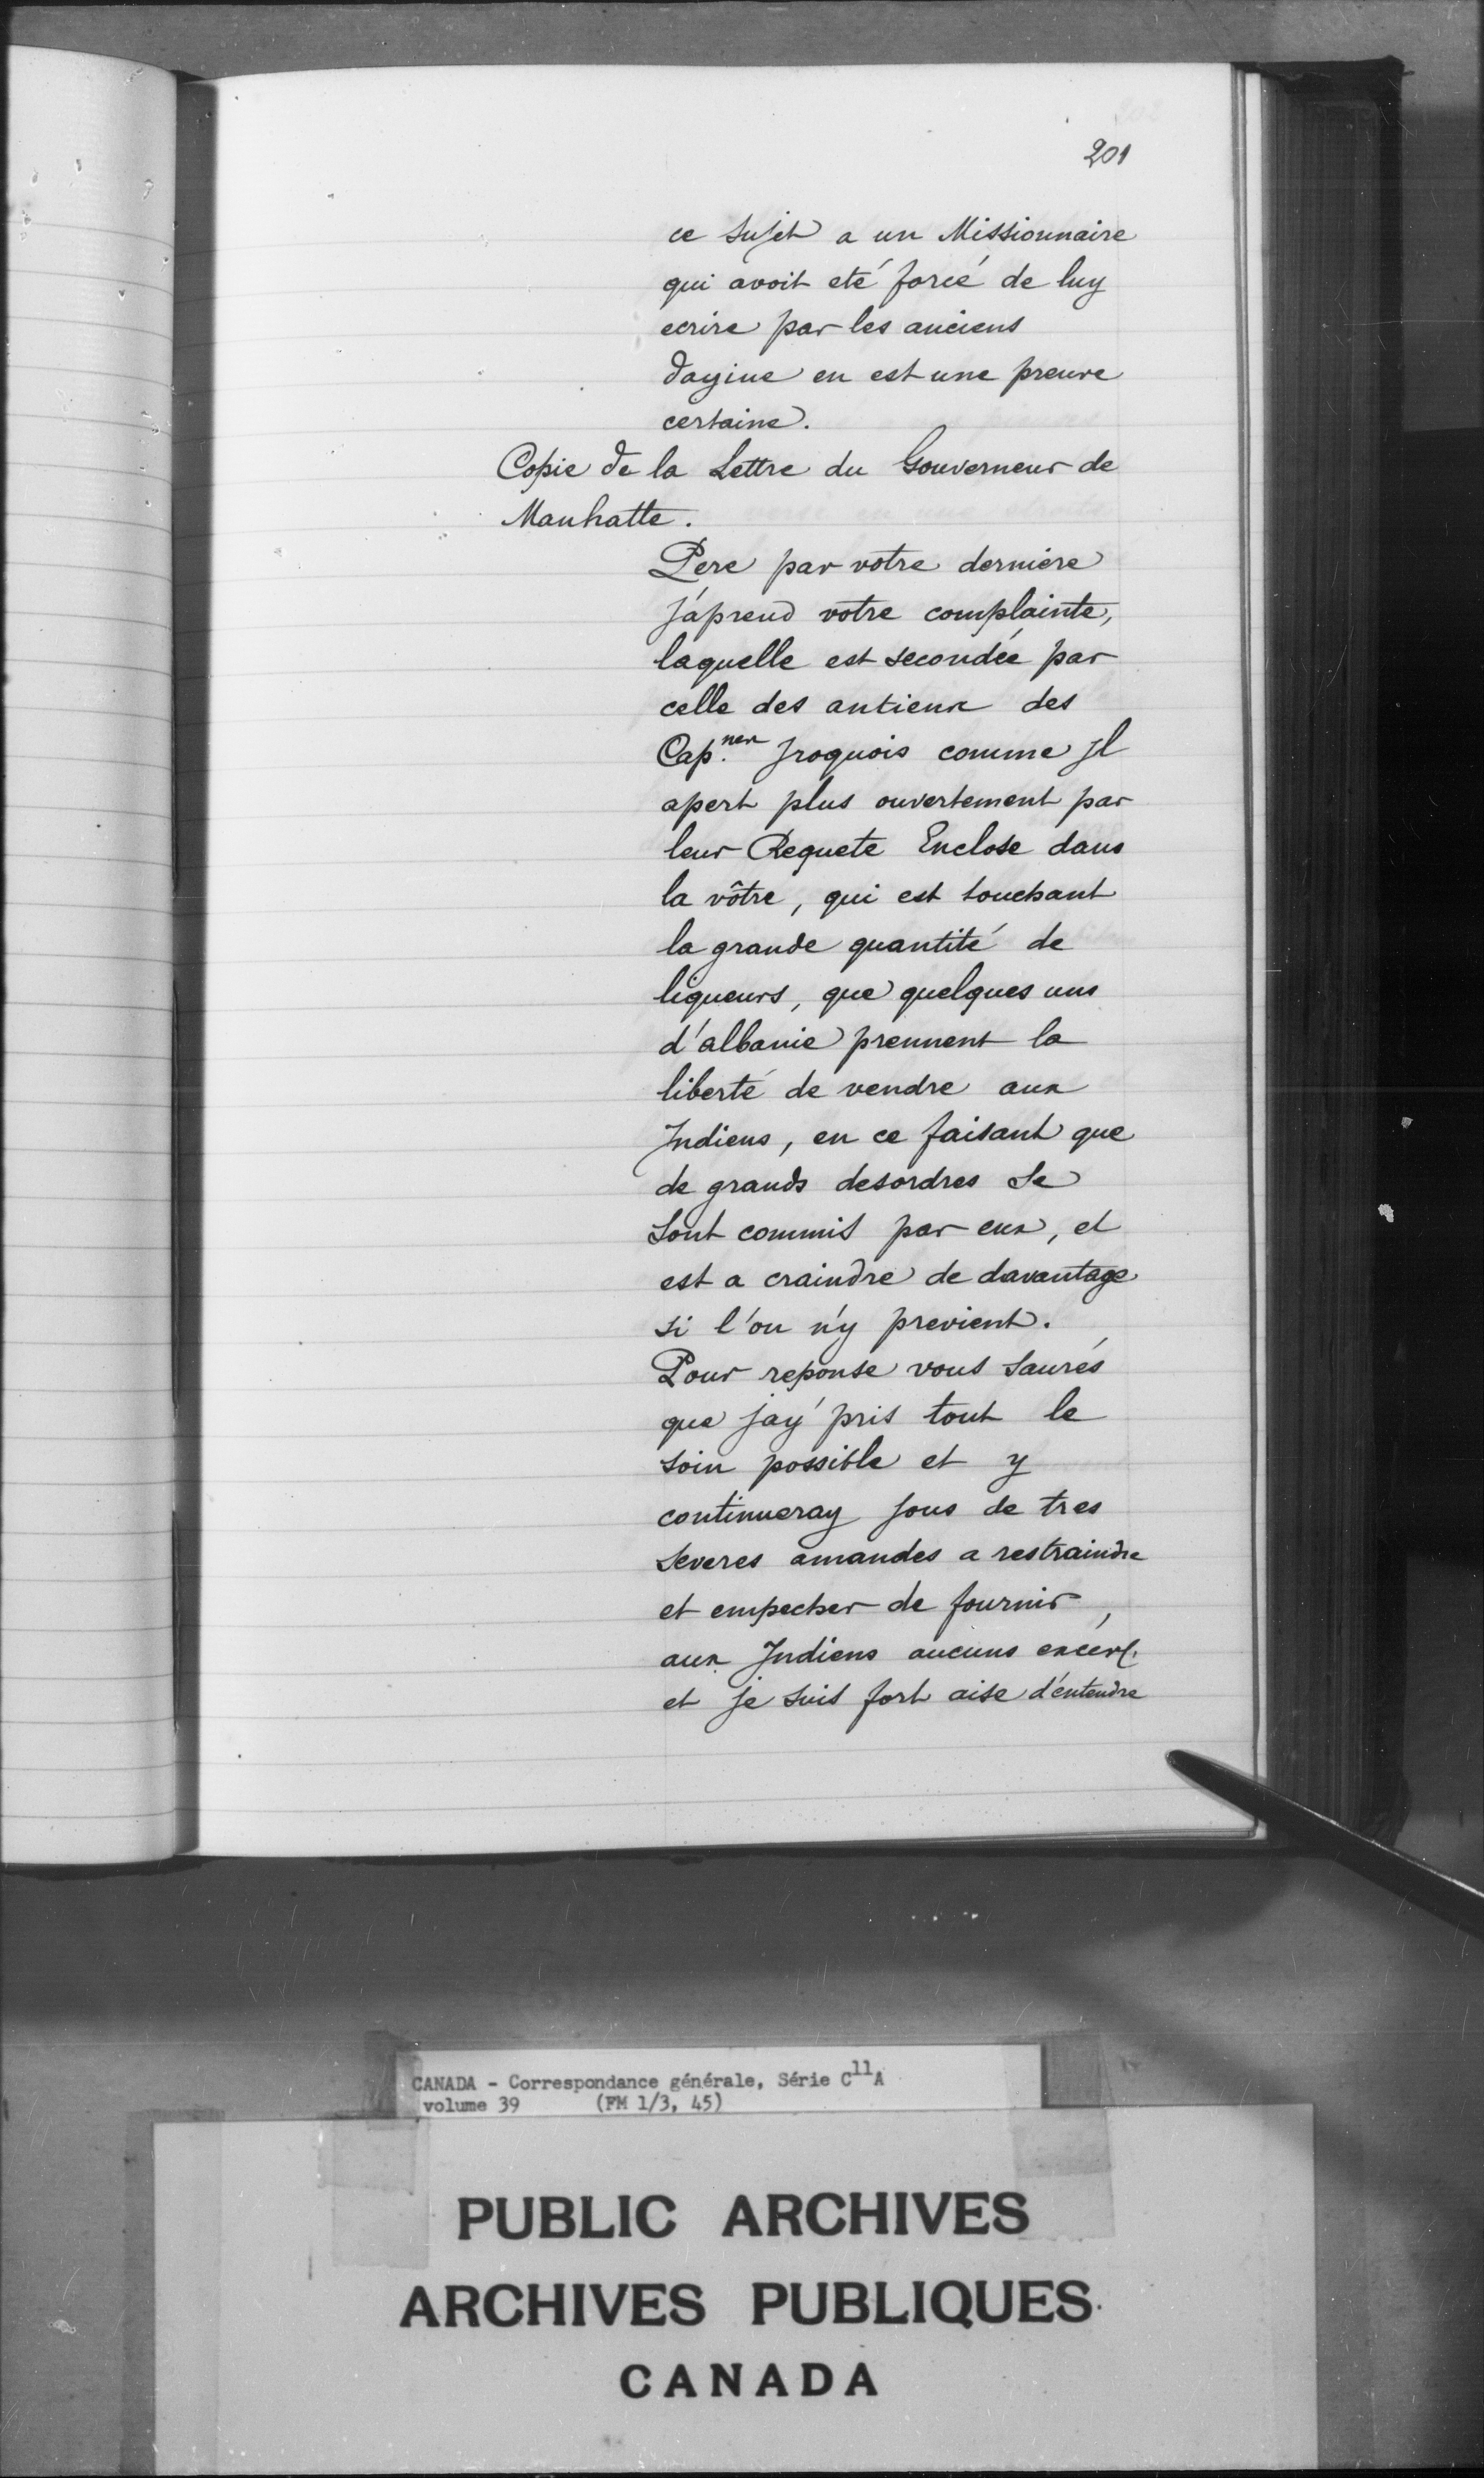 201
ce sujet a un Missionnaire
qui avoit eté forcé de luy
ecrire par les anciens
dagine en est une preuve
certaine.
Copie de la Lettre du Gouverneur de
Manhatte.
Pere par votre derniere
j'aprend votre complainte,
laquelle est secondée par
celle des antieux des
Cap.nex Iroquois comme Jl
apert plus ouvertement par
leur Requete Enclose dans
la vôtre, qui est touchant
la grande quantité de
liqueurs, que quelques uns
d'albanie prennent la
liberté de vendre aux
Indiens, en ce faisant que
de grands desordres se
sont commis par eux, et
est a craindre de davantage
si l'on n'y previent.
Pour reponse vous saurés
que j'ay pris tout le
soin possible et y
continueray sous de tres
severes amandes a restraindre
et empecher de fournir
aux Indiens aucuns
et je suis fort aise d'entendre
CANADA - Correspondance générale, Série C11A
volume 39 (FM 1/3, 45)
PUBLIC ARCHIVES
ARCHIVES PUBLIQUES
CANADA